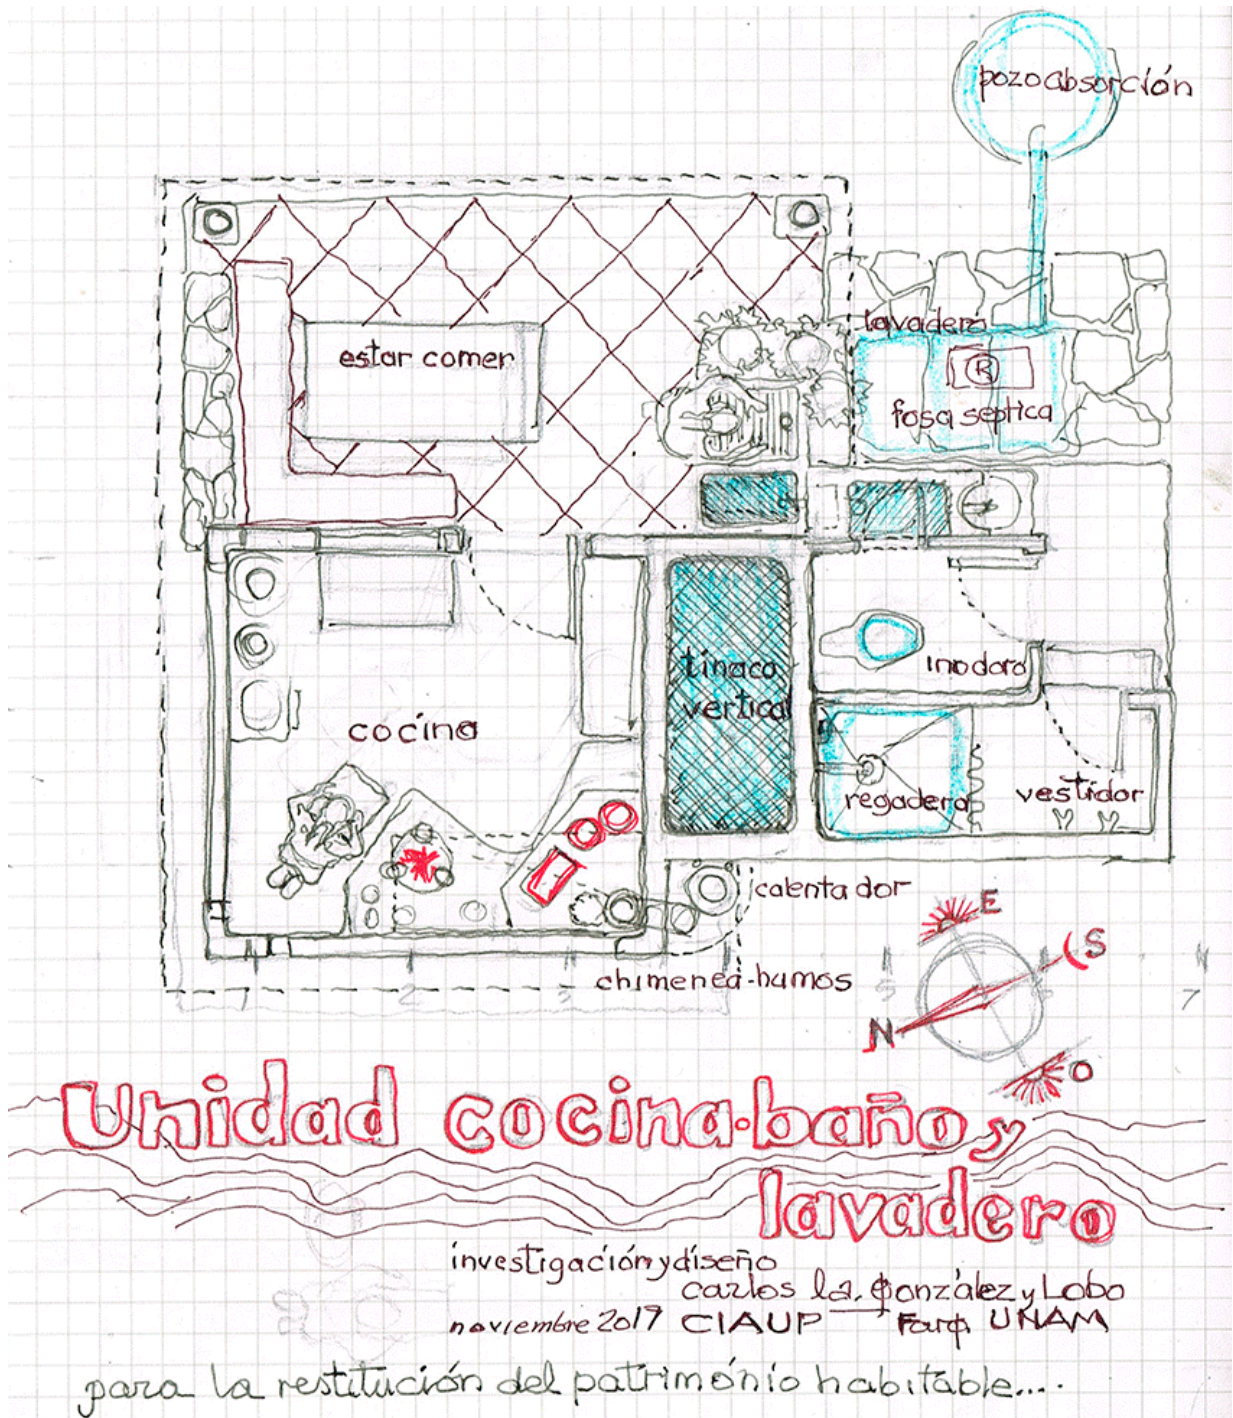 pozo absorción
lavadero
R
estar comer
fosa septica
tinaco
vertical
inodoro
cocina
regadera
vestidor
calentador
chimenea-humos
E
S
N
O
1 2 3 5 6 7
Unidad cocina·baño y
lavadero
investigación y diseño
carlos González y Lobo
noviembre 2017 CIAUP Farq. UNAM
para la restitución del patrimonio habitable....